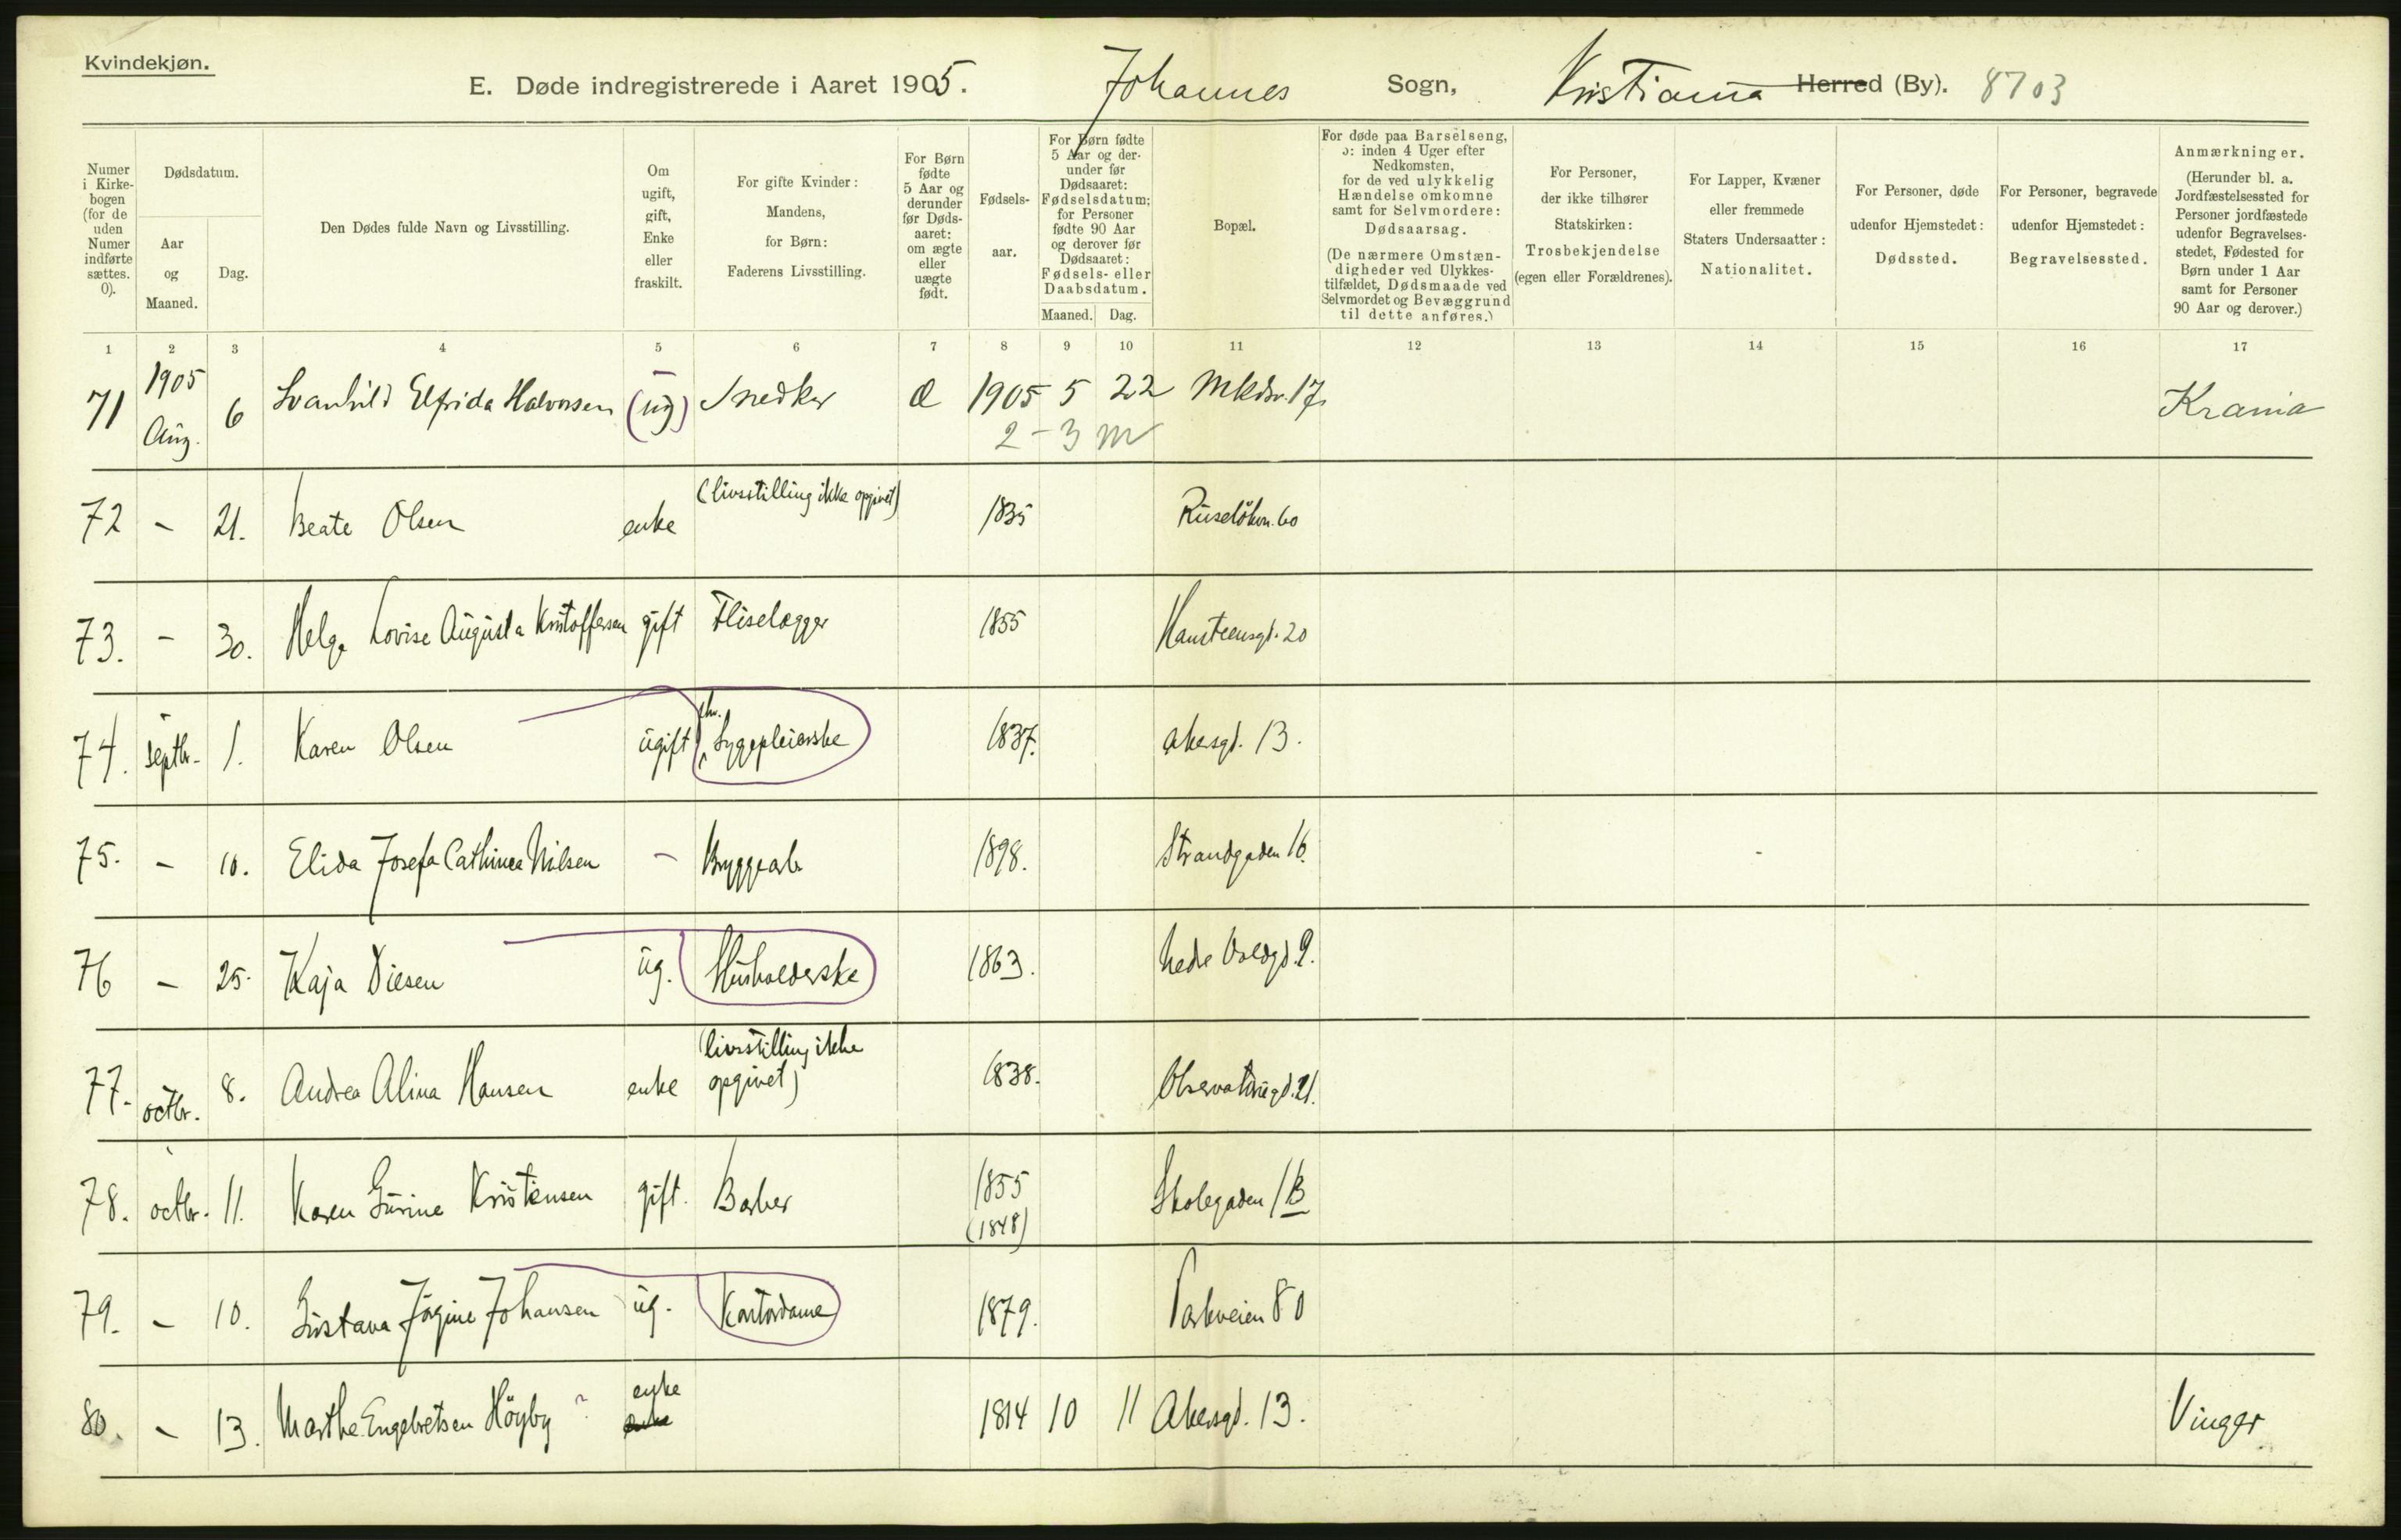 Kvindekjøn.
E. Døde indregistrerede i Aaret 1905. Johannes Sogn, Kristiania Herred (By). 8703
Numer i Kirke-bogen (for de uden Numer indførte sættes. 0).
Dødsdatum.
Aar og Maaned.
Dag.
Den Dødes fulde Navn og Livsstilling.
Om ugift, gift, Enke eller fraskilt.
For gifte Kvinder: Mandens, for Børn: Faderens Livsstilling.
For Børn fødte 5 Aar og derunder før Døds-aaret: om ægte eller uægte født.
Fødsels-aar.
For Børn fødte 5 Aar og der-under før Dødsaaret: Fødselsdatum; for Personer fødte 90 Aar og derover før Dødsaaret: Fødsels- eller Daabsdatum.
Maaned. Dag.
Bopæl.
For døde paa Barselseng, ɔ: inden 4 Uger efter Nedkomsten, for de ved ulykkelig Hændelse omkomne samt for Selvmordere: Dødsaarsag.
(De nærmere Omstæn-digheder ved Ulykkes-tilfældet, Dødsmaade ved Selvmordet og Bevæggrund til dette anføres.)
For Personer, der ikke tilhører Statskirken: Trosbekjendelse (egen eller Forældrenes).
For Lapper, Kvæner eller fremmede Staters Undersaatter: Nationalitet.
For Personer, døde udenfor Hjemstedet: Dødssted.
For Personer, begravede udenfor Hjemstedet: Begravelsessted.
Anmærkninger. (Herunder bl. a. Jordfæstelsessted for Personer jordfæstede udenfor Begravelses-stedet, Fødested for Børn under 1 Aar samt for Personer 90 Aar og derover.)
1 2 3 4 5 6 7 8 9 10 11 12 13 14 15 16 17
71 1905 Aug. 6 Svanhild Elfrida Halvorsen (ug) Snedker 1905 5 22 Mkdsv. 17 Krania
2-3 m
72 – 21. Beate Olsen enke (livsstilling ikke opgivet) 1835 Ruseløkv. 60
73. – 30. Helga Lovise Augusta Kristoffersen gift Fliselægger 1855 Hansteensgd. 20
74. Septbr. 1. Karen Olsen ugift fhv. Sygepleierske 1837. Akersgd. 13.
75. – 10. Elida Josefa Cathinca Nilsen – Bryggearb 1898. Strandgaden 16.
76 – 25. Kaja Diesen ug. Husholderske 1863. Nedre Voldgd. 9.
77. octbr. 8. Andrea Alina Hansen enke (livsstilling ikke opgivet) 1838. Observatoriegd. 21.
78. octbr. 11. Karen Gurine Kristensen gift. Barber 1855 (1848) Skolegaden 1B
79. – 10. Gustava Jørgine Johansen ug. Kontordame 1879. Parkveien 80
80. – 13. Marthe Engebretsen Höyby ? enke 1814 10 11 Akersgd. 13. Vinger